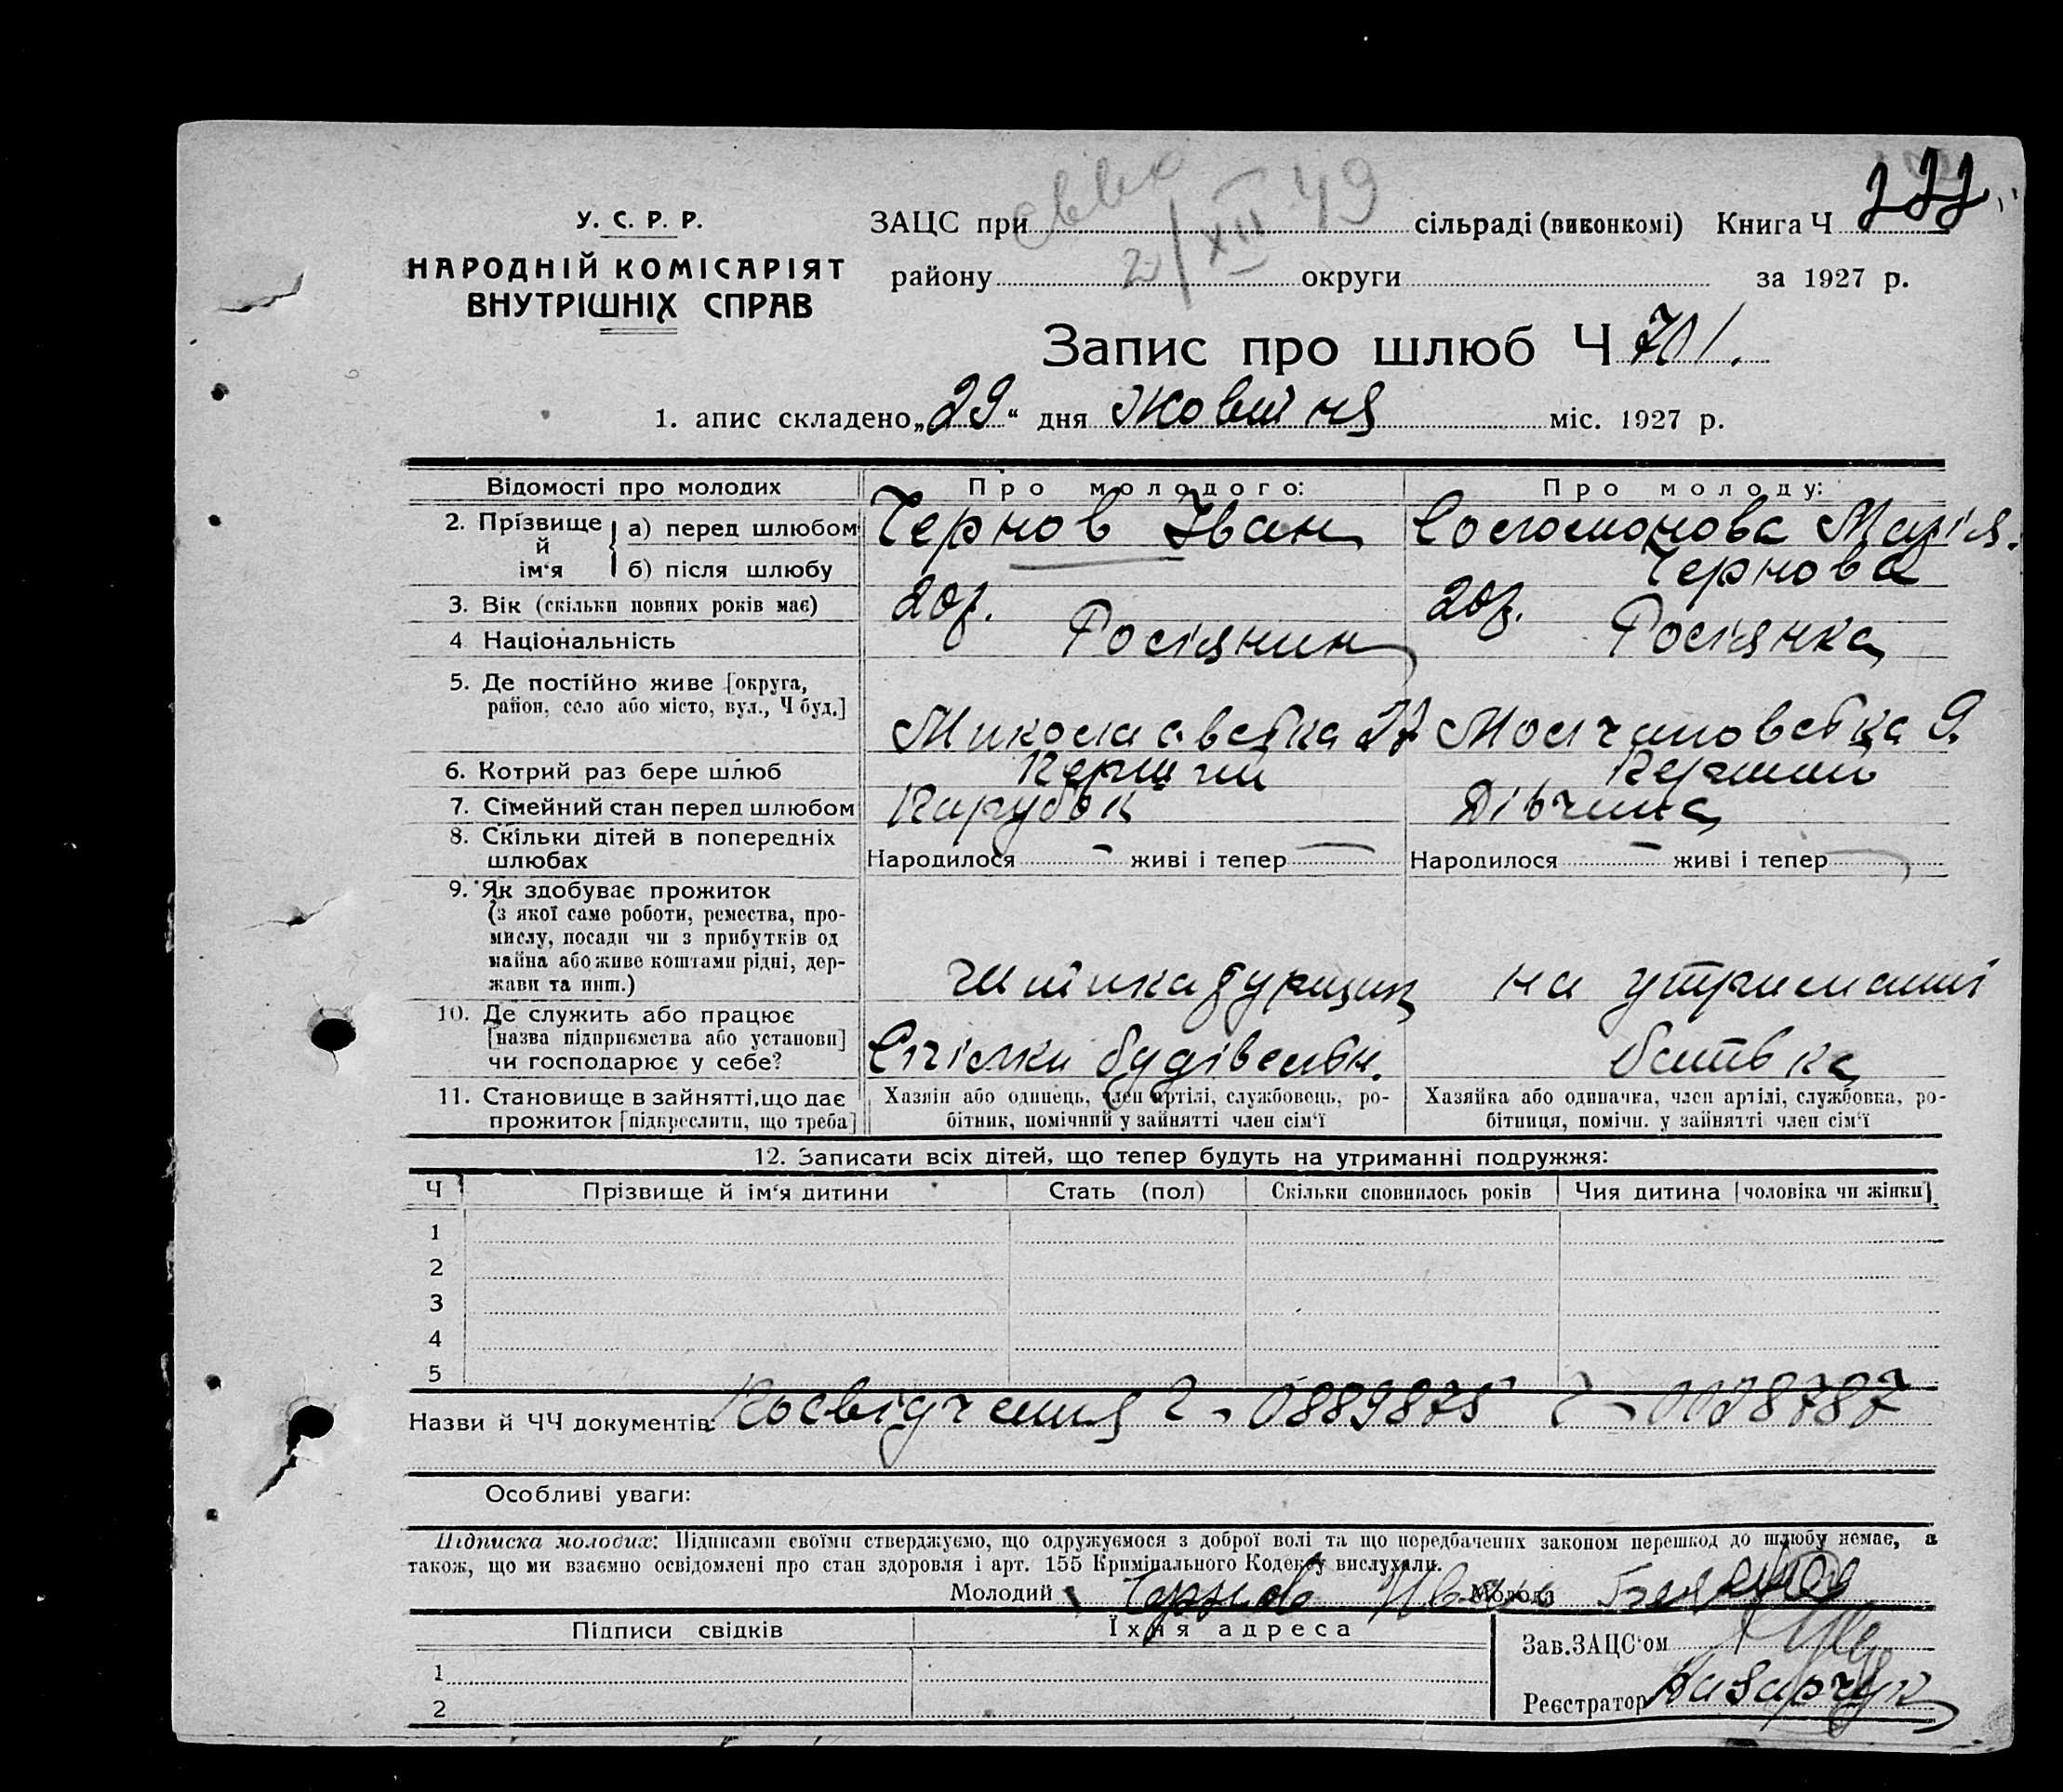 У. С. Р. Р.
НАРОДНІЙ КОМІСАРІЯТ
ВНУТРІШНІХ СПРАВ
ЗАЦС при сільраді (виконкомі) Книга Ч
2/XII 49
району округи за 1927 р.
Запис про шлюб Ч 701.
1. апис складено „29“ дня Жовтня міс. 1927 р.
Відомості про молодих Про молодого: Про молоду:
2. Прізвище й ім‘я а) перед шлюбом Чернов Іван Соломонова Марія.
б) після шлюбу Чернова
3. Вік (скільки повних років має) 20р. 20р.
4 Національність Росіянин Росіянка
5. Де постійно живе [округа,
район, село або місто, вул., Ч буд.] Миколаєвська 27 Молчановська 9.
6. Котрий раз бере шлюб Перший Перший
7. Сімейний стан перед шлюбом Парубок Дівчина
8. Скільки дітей в попередніх
шлюбах Народилося — живі і тепер — Народилося — живі і тепер —
9. Як здобуває прожиток
(з якої саме роботи, ремества, про-
мислу, посади чи з прибутків од
майна або живе коштами рідні, дер-
жави та инш.) на утриманні
10. Де служить або працює
[назва підприємства або установи]
чи господарює у себе? Спілки будівельн. батька
11. Становище в зайнятті, що дає
прожиток [підкреслити, що треба]
Хазяїн або одинець, член артілі, службовець, ро-
бітник, помічний у зайнятті член сім‘ї
Хазяйка або одиначка, член артілі, службовка, ро-
бітниця, помічн. у зайнятті член сім‘ї
12. Записати всіх дітей, що тепер будуть на утриманні подружжя:
Ч Прізвище й ім‘я дитини Стать (пол) Скільки сповнилось років Чия дитина [чоловіка чи жінки]
1
2
3
4
5
Назви й ЧЧ документів: Посвідчення 0889875
Особливі уваги:
Підписка молодих: Підписами своїми стверджуємо, що одружуємося з доброї волі та що передбачених законом перешкод до шлюбу немає, а
також, що ми взаємно освідомлені про стан здоровля і арт. 155 Кримінального Кодексу вислухали.
Молодий Чернов Иван Молода
Підписи свідків Їхня адреса
Зав. ЗАЦС‘ом
1
Реєстратор Назарчук
2